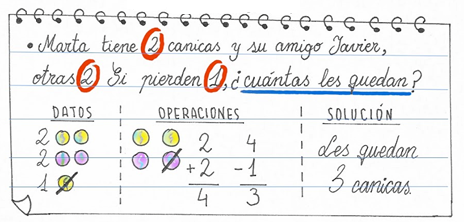 • Marta tiene 2 canicas y su amigo Javier,
otras 2. Si pierden 1, ¿cuántas les quedan?
DATOS
2
2
1
OPERACIONES
2 4
+2 -1
4 3
SOLUCIÓN
Les quedan
3 canicas.